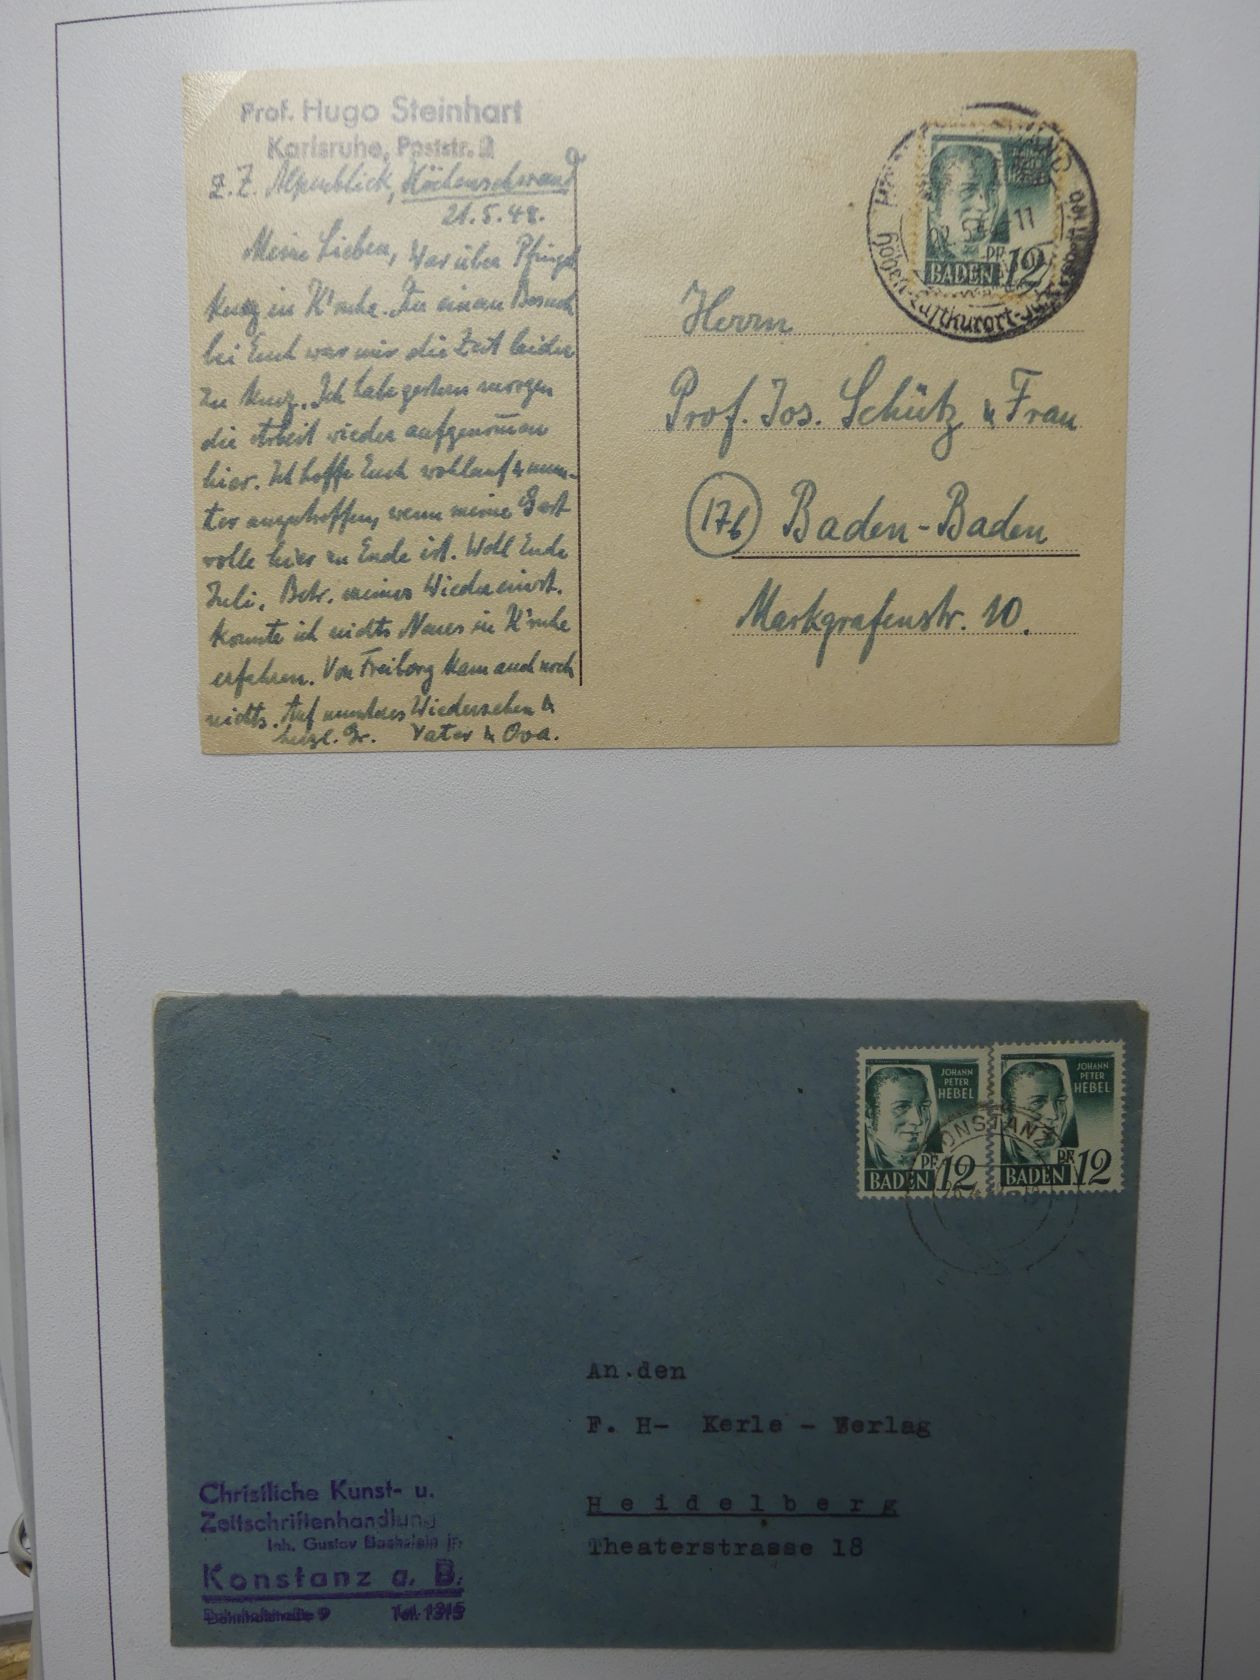 Prof. Hugo Steinhart
Karlsruhe, Poststr. 2
z. Z. Alpenblick, Höchenschwand
21.5.48.
Meine Lieben, War über Pfingst
kurz in K'ruhe. Zu einem Besuch
bei Euch war mir die Zeit leider
zu kurz. Ich habe gestern morgen
die Arbeit wieder aufgenommen
hier. Ich hoffe Euch wohlauf & mun-
ter anzutreffen, wenn meine Gast
rolle hier zu Ende ist. Wohl Ende
Juli. Betr. meines Wiedereinst.
konnte ich nichts Neues in K'ruhe
erfahren. Von Freiburg kam auch noch
nichts. Auf munteres Wiedersehen &
herzl. Gr. Vater &
BADEN PF 12
Luftkurort
11
Herrn
Prof. Jos. Schütz u Frau
17b Baden-Baden
Markgrafenstr. 10.
JOHANN PETER HEBEL
BADEN PF 12
JOHANN PETER HEBEL
BADEN PF 12
KONSTANZ
An den
F. H- Kerle - Verlag
Heidelberg
Theaterstrasse 18
Christliche Kunst- u.
Zeitschriftenhandlung
Inh. Gustav
Konstanz a. B.
9 Tel. 1315